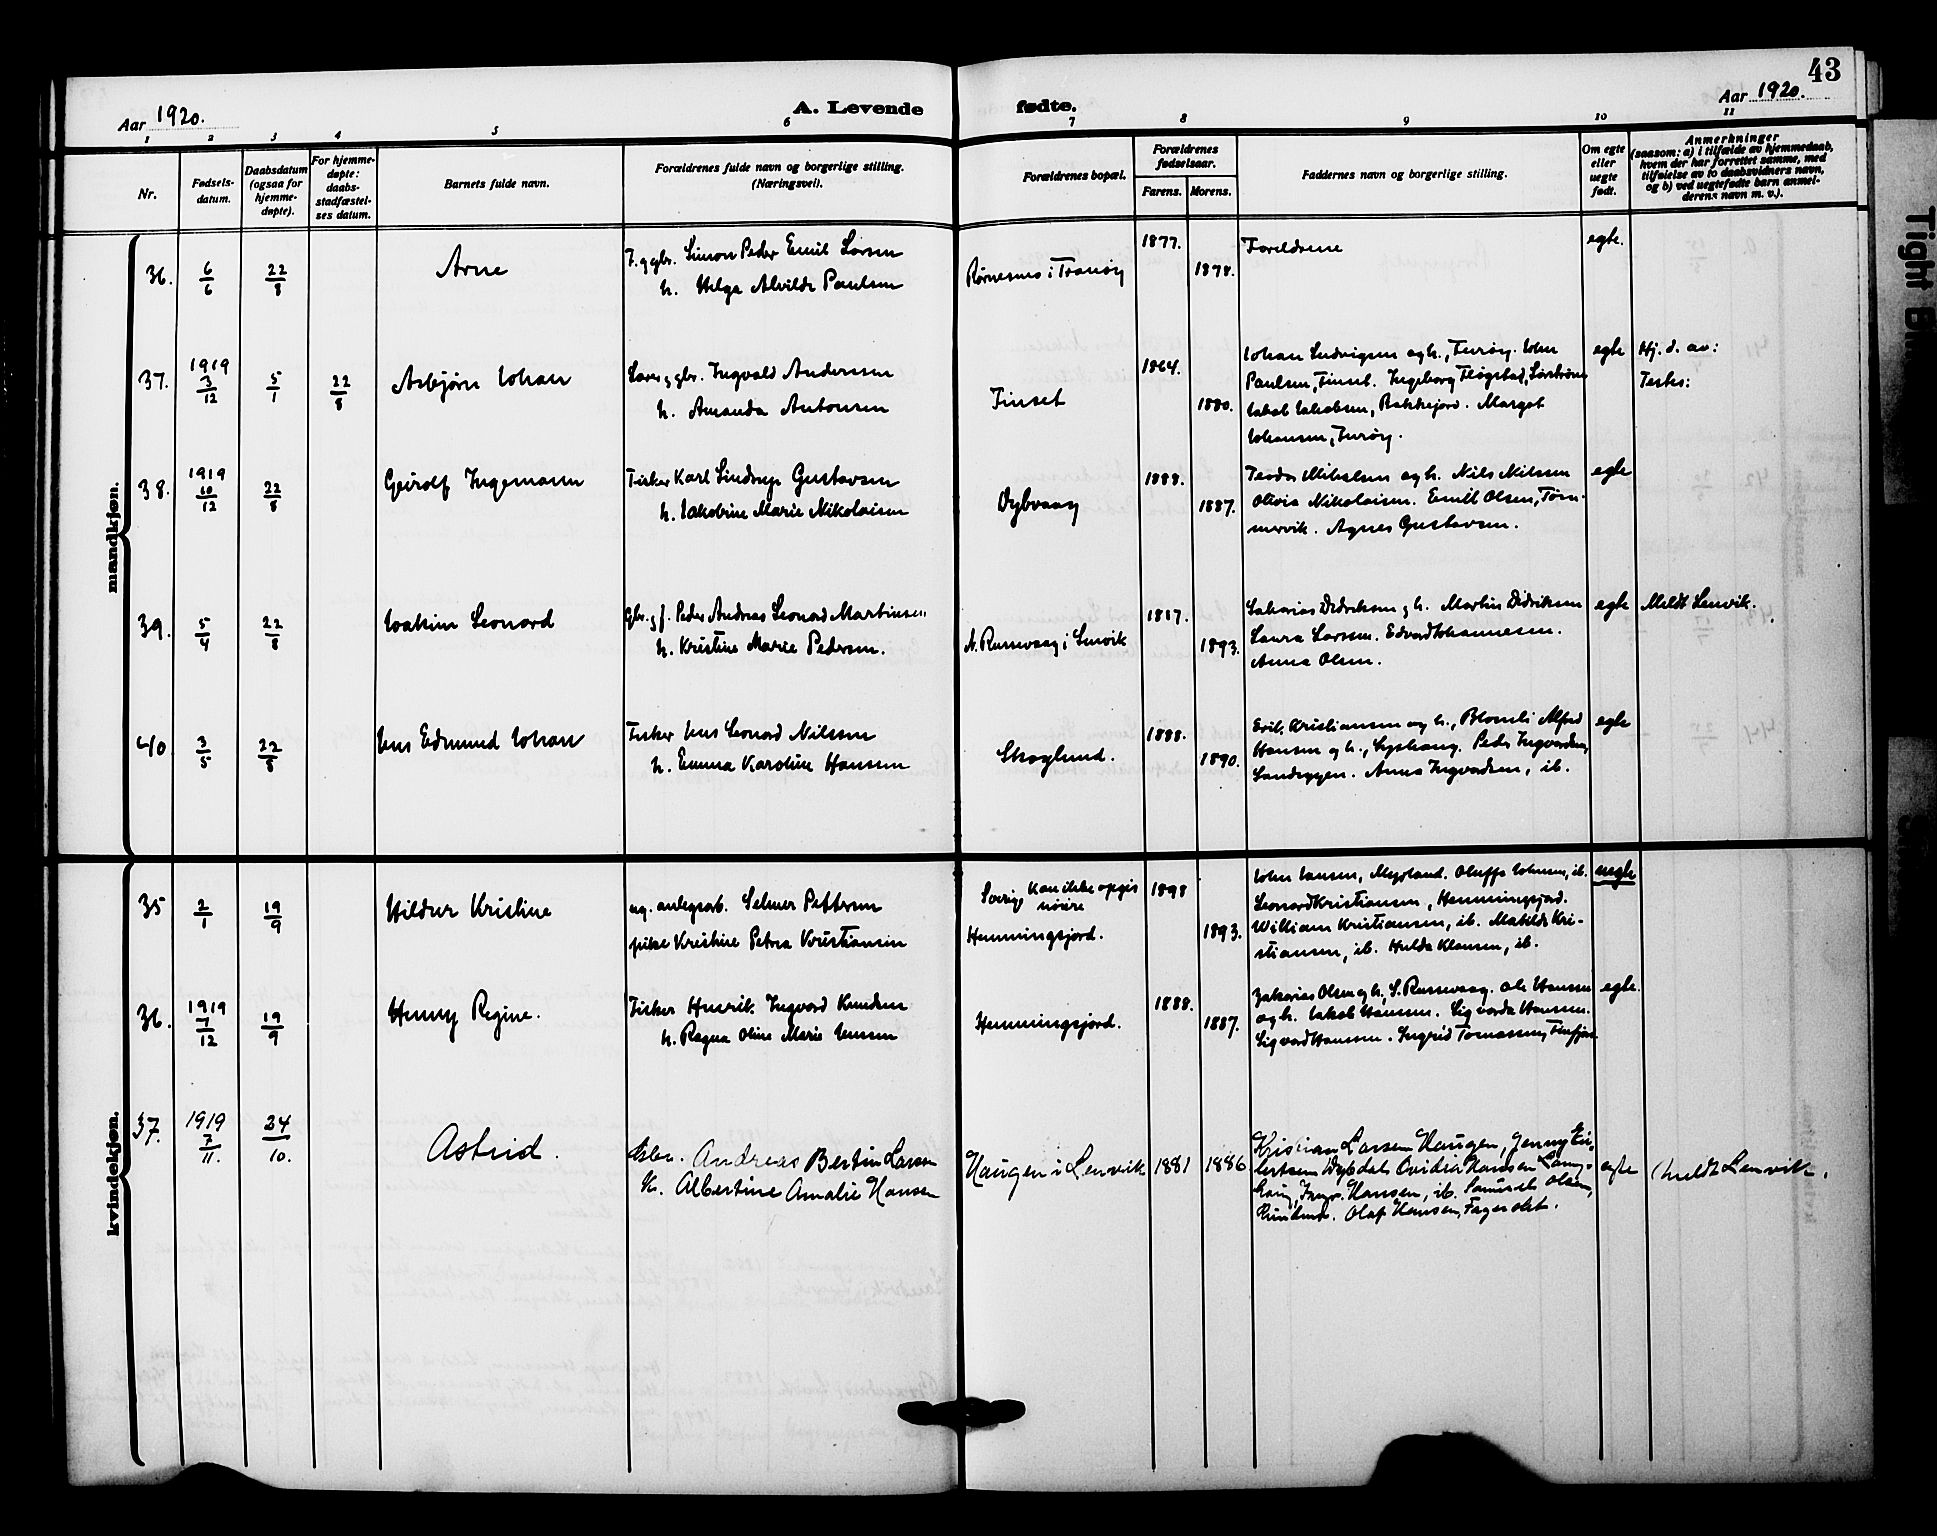 43
Aar 1920.
A. Levende fødte.
Aar 1920.
1 2 3 4 5 6 7 8 9 10 11
Nr.
Fødsels-
datum.
Daabsdatum
(ogsaa for
hjemme-
døpte).
For hjemme-
døpte:
daabs-
stadfæstel-
ses datum.
Barnets fulde navn.
Forældrenes fulde navn og borgerlige stilling.
(Næringsvei).
Forældrenes bopæl.
Forældrenes
fødselsaar.
Farens. Morens.
Faddernes navn og borgerlige stilling.
Om egte
eller
uegte
født.
Anmerkninger
(saasom: a) i tilfælde av hjemmedaab,
hvem der har forrettet samme, med
tilføielse av to daabsvidners navn,
og b) ved uegtefødte barn anmel-
derens navn m. v.).
mandkjøn.
36. 6/6 22/8 Arne
F. og gbr. Simon Peder Emil Larsen
h. Helga Alvilde Paulsen
i Tranøy
1877.
1878.
Foreldrene
egte.
37. 1919 3/12 5/1 22/8 Asbjørn Johan
gbr. Ingvald Andersen
h. Amanda Antonsen
Finset
1864.
1880.
Johan Ludvigsen og h., Furøy. John
Paulsen, Finset. Ingeborg Fløgstad,
Jakob Jakobsen, Bakkejord. Margot
Johansen, Furøy.
egte
Hj. d. av:
Testes:
38. 1919 10/12 22/8 Geirolf Ingemann
Fisker Karl Lindrup Gustavsen
h. Jakobine Marie Nikolaisen
1888.
1887.
Teodor Mikalsen og h. Nils Nilssen
Olivia Nikolaisen. Emilt Olsen, Tøm-
mervik. Agnes Gustavsen.
egte
39. 5/4 22/8 Joakim Leonard
Gbr. og f. Peder Andreas Leonard Martinsen
h. Kristine Marie Pedersen.
N. Russevaag i Lenvik
1817.
1893.
Sakarias Didriksen og h. Martin Didriksen
Laura Larsen. Edvard Johannesen.
Anna Olsen.
egte
Meldt Lenvik.
40 3/5 22/8 Jens Edmund Johan
Fisker Jens Leonard Nilssen
h. Emma Karoline Hansen
Skoglund.
1888.
1890.
Erik Kristiansen og h., Blomli Alfred
Hansen og h., Lyshaug. Peder Ingvardsen,
Sandeggen. Anna Ingvardsen, ib.
egte
kvindekjøn.
35 2/1 19/9 Hildur Kristine
ug. anlegsarb. Selmer Pettersen
pike Kristine Petrea Kristiansen
Sverige kan ikke opgis
nøiere
Hemmingsjord.
1898
1893.
John Jansen, Myrland. Oluffa Johnsen, ib.
Leonard Kristiansen, Hemmingsjord.
William Kristiansen, ib. Matilde Kri-
stiansen, ib. Hulda Klausen, ib.
uegte
36. 1919 7/12 19/9 Henny Regine.
Fisker Henrik Ingvard Knudsen
h. Ragna Oline Marie Jensen
Hemmingsjord.
1888.
1887.
Zakarias Olsen og h., S. Russevaag. Ole Hansen
og h. Jakob Hansen. Sigvarda Hanssen.
Sigvard Hanssen. Ingrid Tomassen,
egte.
37. 1919 7/11. 24/10. Astrid.
Gbr. Andreas Bertin Larsen
H. Albertine Amalie Hansen
Haugen i Lenvik
1881
1886
Kristian Larsen Haugen, Jenny Ei-
lertsen Ovidia Hansen
Hansen, ib. Samuel Olsen,
Olaf Hansen,
egte
(meldt Lenvik.